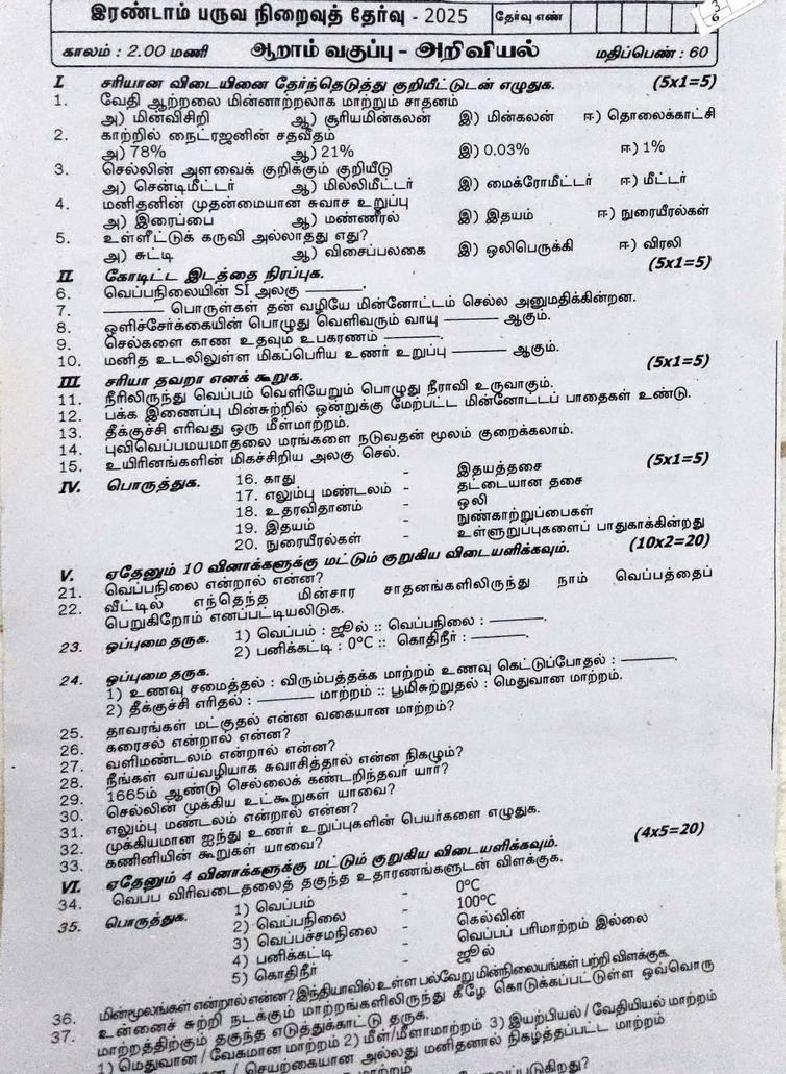 இரண்டாம் பருவ நிறைவுத் தேர்வு - 2025 தேர்வு எண்
காலம் : 2.00 மணி ஆறாம் வகுப்பு - அறிவியல் மதிப்பெண் : 60
I. சரியான விடையினை தேர்ந்தெடுத்து குறியீட்டுடன் எழுதுக. (5x1=5)
1. வேதி ஆற்றலை மின்னாற்றலாக மாற்றும் சாதனம்
அ) மின்விசிறி ஆ) சூரியமின்கலன் இ) மின்கலன் ஈ) தொலைக்காட்சி
2. காற்றில் நைட்ரஜனின் சதவீதம்
அ) 78% ஆ) 21% இ) 0.03% ஈ) 1%
3. செல்லின் அளவைக் குறிக்கும் குறியீடு
அ) சென்டிமீட்டர் ஆ) மில்லிமீட்டர் இ) மைக்ரோமீட்டர் ஈ) மீட்டர்
4. மனிதனின் முதன்மையான சுவாச உறுப்பு
அ) இரைப்பை ஆ) மண்ணீரல் இ) இதயம் ஈ) நுரையீரல்கள்
5. உள்ளீட்டுக் கருவி அல்லாதது எது?
அ) சுட்டி ஆ) விசைப்பலகை இ) ஒலிபெருக்கி ஈ) விரலி
II கோடிட்ட இடத்தை நிரப்புக. (5x1=5)
6. வெப்பநிலையின் SI அலகு ______.
7. ______ பொருள்கள் தன் வழியே மின்னோட்டம் செல்ல அனுமதிக்கின்றன.
8. ஒளிச்சேர்க்கையின் பொழுது வெளிவரும் வாயு ______ ஆகும்.
9. செல்களை காண உதவும் உபகரணம் ______.
10. மனித உடலிலுள்ள மிகப்பெரிய உணர் உறுப்பு ______ ஆகும்.
III சரியா தவறா எனக் கூறுக. (5x1=5)
11. நீரிலிருந்து வெப்பம் வெளியேறும் பொழுது நீராவி உருவாகும்.
12. பக்க இணைப்பு மின்சுற்றில் ஒன்றுக்கு மேற்பட்ட மின்னோட்டப் பாதைகள் உண்டு.
13. தீக்குச்சி எரிவது ஒரு மீள்மாற்றம்.
14. புவிவெப்பமயமாதலை மரங்களை நடுவதன் மூலம் குறைக்கலாம்.
15. உயிரினங்களின் மிகச்சிறிய அலகு செல்.
IV. பொருத்துக. (5x1=5)
16. காது - இதயத்தசை
17. எலும்பு மண்டலம் - தட்டையான தசை
18. உதரவிதானம் - ஒலி
19. இதயம் - நுண்காற்றுப்பைகள்
20. நுரையீரல்கள் - உள்ளுறுப்புகளைப் பாதுகாக்கின்றது
V. ஏதேனும் 10 வினாக்களுக்கு மட்டும் குறுகிய விடையளிக்கவும். (10x2=20)
21. வெப்பநிலை என்றால் என்ன?
22. வீட்டில் எந்தெந்த மின்சார சாதனங்களிலிருந்து நாம் வெப்பத்தைப்
பெறுகிறோம் எனப்பட்டியலிடுக.
23. ஒப்புமை தருக. 1) வெப்பம் : ஜூல் :: வெப்பநிலை : ______.
2) பனிக்கட்டி : 0°C :: கொதிநீர் : ______.
24. ஒப்புமை தருக.
1) உணவு சமைத்தல் : விரும்பத்தக்க மாற்றம் உணவு கெட்டுப்போதல் : ______.
2) தீக்குச்சி எரிதல் : ______ மாற்றம் :: பூமிசுற்றுதல் : மெதுவான மாற்றம்.
25. தாவரங்கள் மட்குதல் என்ன வகையான மாற்றம்?
26. கரைசல் என்றால் என்ன?
27. வளிமண்டலம் என்றால் என்ன?
28. நீங்கள் வாய்வழியாக சுவாசித்தால் என்ன நிகழும்?
29. 1665ம் ஆண்டு செல்லைக் கண்டறிந்தவர் யார்?
30. செல்லின் முக்கிய உட்கூறுகள் யாவை?
31. எலும்பு மண்டலம் என்றால் என்ன?
32. முக்கியமான ஐந்து உணர் உறுப்புகளின் பெயர்களை எழுதுக.
33. கணினியின் கூறுகள் யாவை?
VI. ஏதேனும் 4 வினாக்களுக்கு மட்டும் குறுகிய விடையளிக்கவும். (4x5=20)
34. வெப்ப விரிவடைதலைத் தகுந்த உதாரணங்களுடன் விளக்குக.
35. பொருத்துக. 1) வெப்பம் - 0°C
2) வெப்பநிலை - 100°C
3) வெப்பச்சமநிலை - கெல்வின்
4) பனிக்கட்டி - வெப்பப் பரிமாற்றம் இல்லை
5) கொதிநீர் - ஜூல்
36. மின்மூலங்கள் என்றால் என்ன? இந்தியாவில் உள்ள பல்வேறு மின்நிலையங்கள் பற்றி விளக்குக.
37. உன்னைச் சுற்றி நடக்கும் மாற்றங்களிலிருந்து கீழே கொடுக்கப்பட்டுள்ள ஒவ்வொரு
மாற்றத்திற்கும் தகுந்த எடுத்துக்காட்டு தருக.
1) மெதுவான / வேகமான மாற்றம் 2) மீள்/மீளாமாற்றம் 3) இயற்பியல் / வேதியியல் மாற்றம்
/ செயற்கையான அல்லது மனிதனால் நிகழ்த்தப்பட்ட மாற்றம்